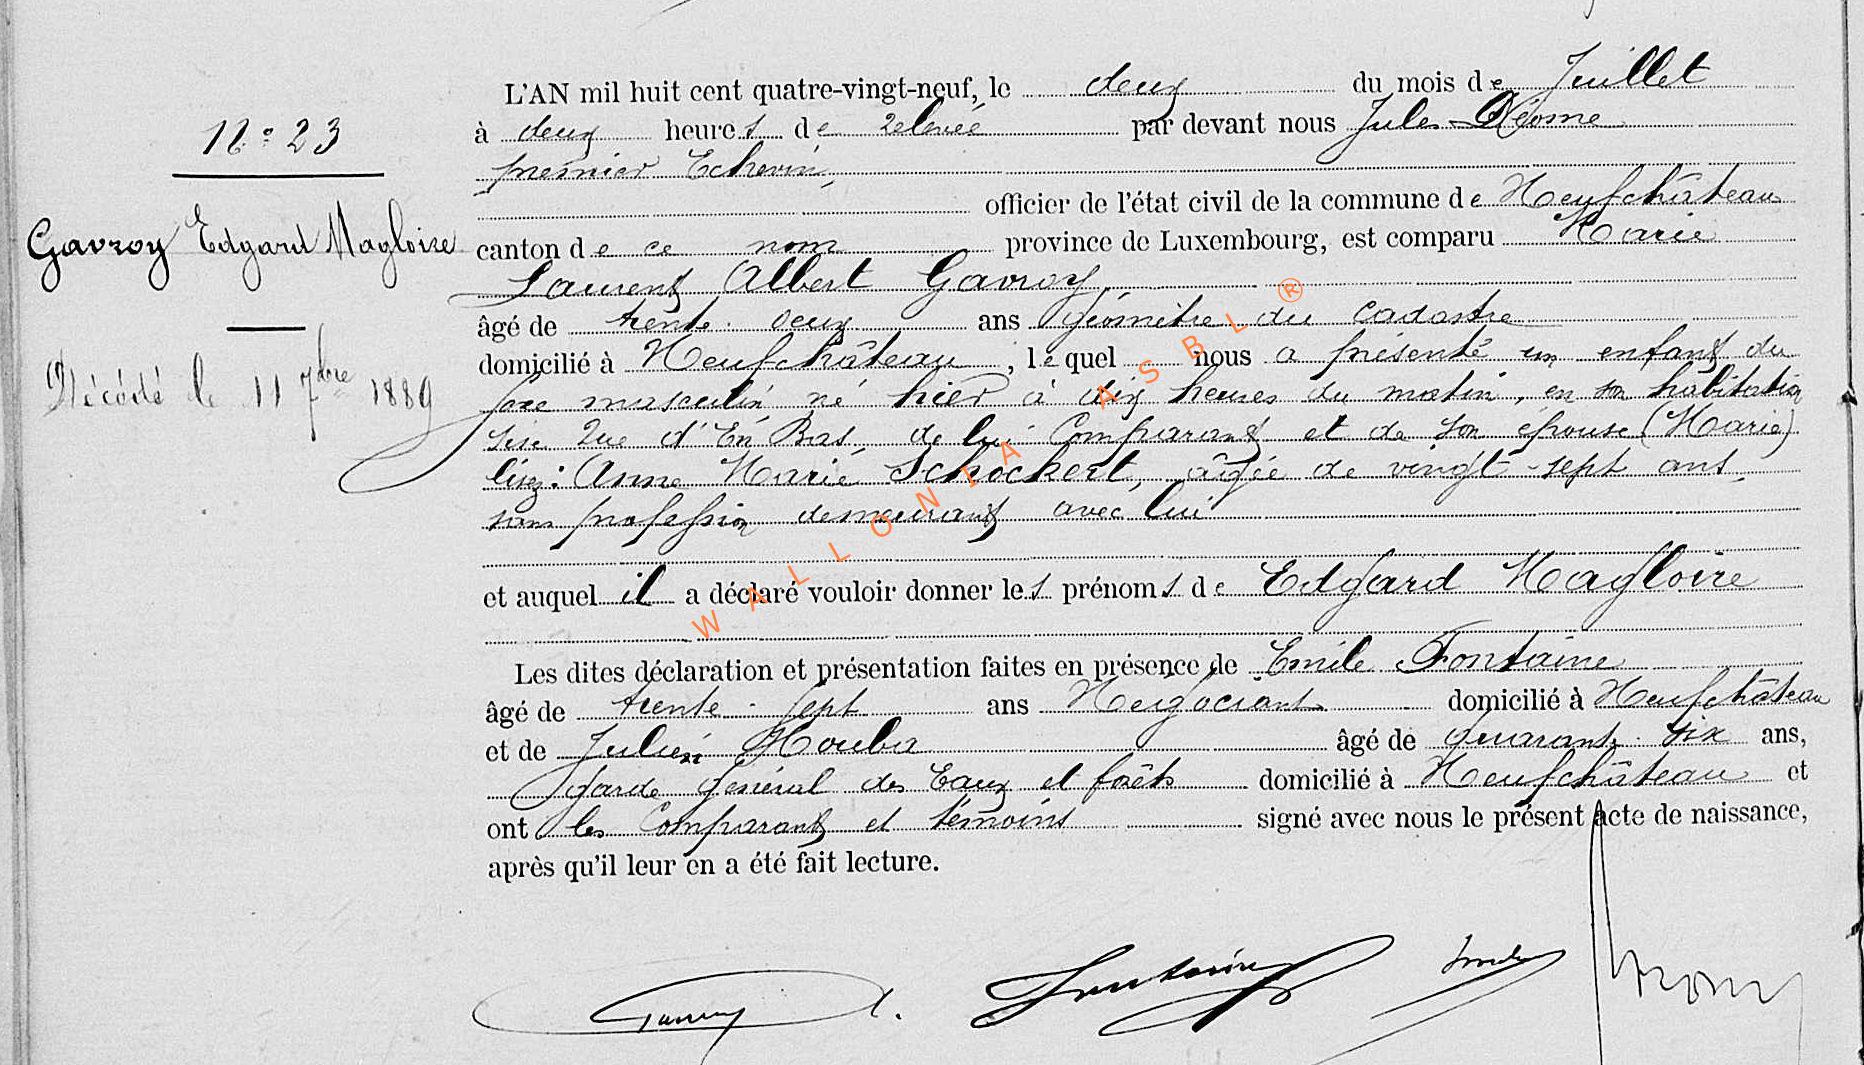 N.° 23
Gavroy Edgard Magloire
Décédé le 11 7bre 1889
L'AN mil huit cent quatre-vingt-neuf, le deux du mois de Juillet
à deux heures de relevée par devant nous Jules
premier Echevin,
officier de l'état civil de la commune de Neufchâteau
canton de ce nom province de Luxembourg, est comparu Marie
Laurent Albert Gavroy,
âgé de trente-deux ans géomètre du cadastre
domicilié à Neufchâteau, lequel nous a présenté un enfant du
sexe masculin né hier à dix heures du matin, en son habitation
sise Rue d'En Bas, de lui Comparant et de son épouse (Marie)
lisez: Anne Marie Schockert, âgée de vingt-sept ans,
sans profession demeurant avec lui
et auquel il a déclaré vouloir donner les prénoms de Edgard Magloire
Les dites déclaration et présentation faites en présence de Emile Fontaine
âgé de trente-sept ans Négociant domicilié à Neufchâteau
et de Julien Houba âgé de quarante-six ans,
garde général des Eaux et forêts domicilié à Neufchâteau et
ont les Comparant et témoins signé avec nous le présent acte de naissance,
après qu'il leur en a été fait lecture.
Gavroy A. Fontaine
WALLONIA ASBL ®